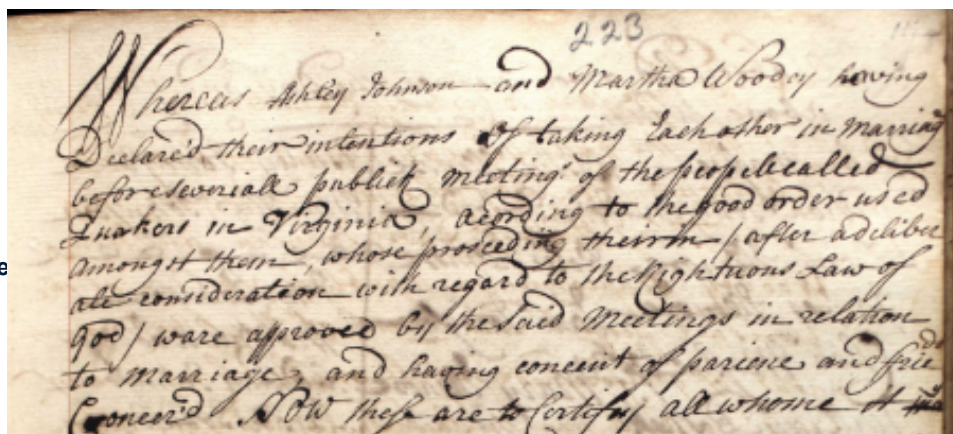 223
Whereas Ashley Johnson and Martha Woody having
Declare'd their intentions of taking Each other in Marriag
before severiall publick meetings of the people called
Quakers in Virginia, acording to the good order used
amongst them, whose proseeding theirin / after a deliber
ate consideration with regard to the Rightuous Law of
god / ware approved by the Said Meetings in relation
to marriage, and having concent of pariene and frieds
Concer'd Now these are to Certify all whome it
e